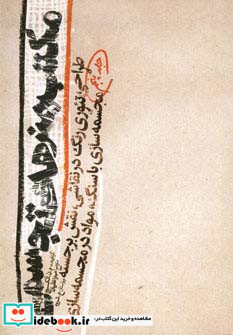 مکتب هنرهای تجسمی
طراحی، تئوری رنگ در نقاشی، نقش برجسته
مجسمه سازی با سنگ، مواد در مجسمه سازی
جلد پنجم
مشاهده و خرید این کتاب در:
idebook.ir